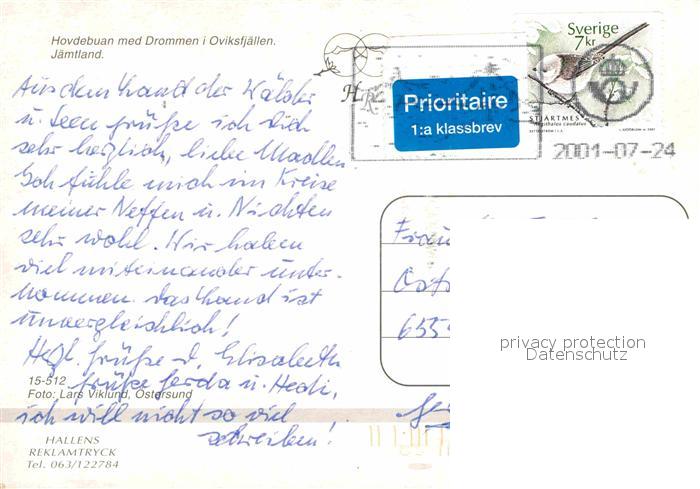 Hovdebuan med Drommen i Oviksfjällen.
Jämtland.
Sverige
7kr
STJÄRTMES
Aegithalos caudatus
Prioritaire
1:a klassbrev
2001-07-24
Aus dem Land der Wälder
u. Seen grüße ich Dich
sehr herzlich, liebe
Ich fühle mich im Kreise
meiner Neffen u. Nichten
sehr wohl. Wir haben
viel miteinander unter-
nommen. Das Land ist
unvergleichlich!
Hzgl. Grüße v. Elisabeth
Grüße Gerda u. Hedi,
ich will nicht so viel
schreiben!
Frau
655
privacy protection
Datenschutz
15-512
Foto: Lars Viklund, Östersund
HALLENS
REKLAMTRYCK
Tel. 063/122784